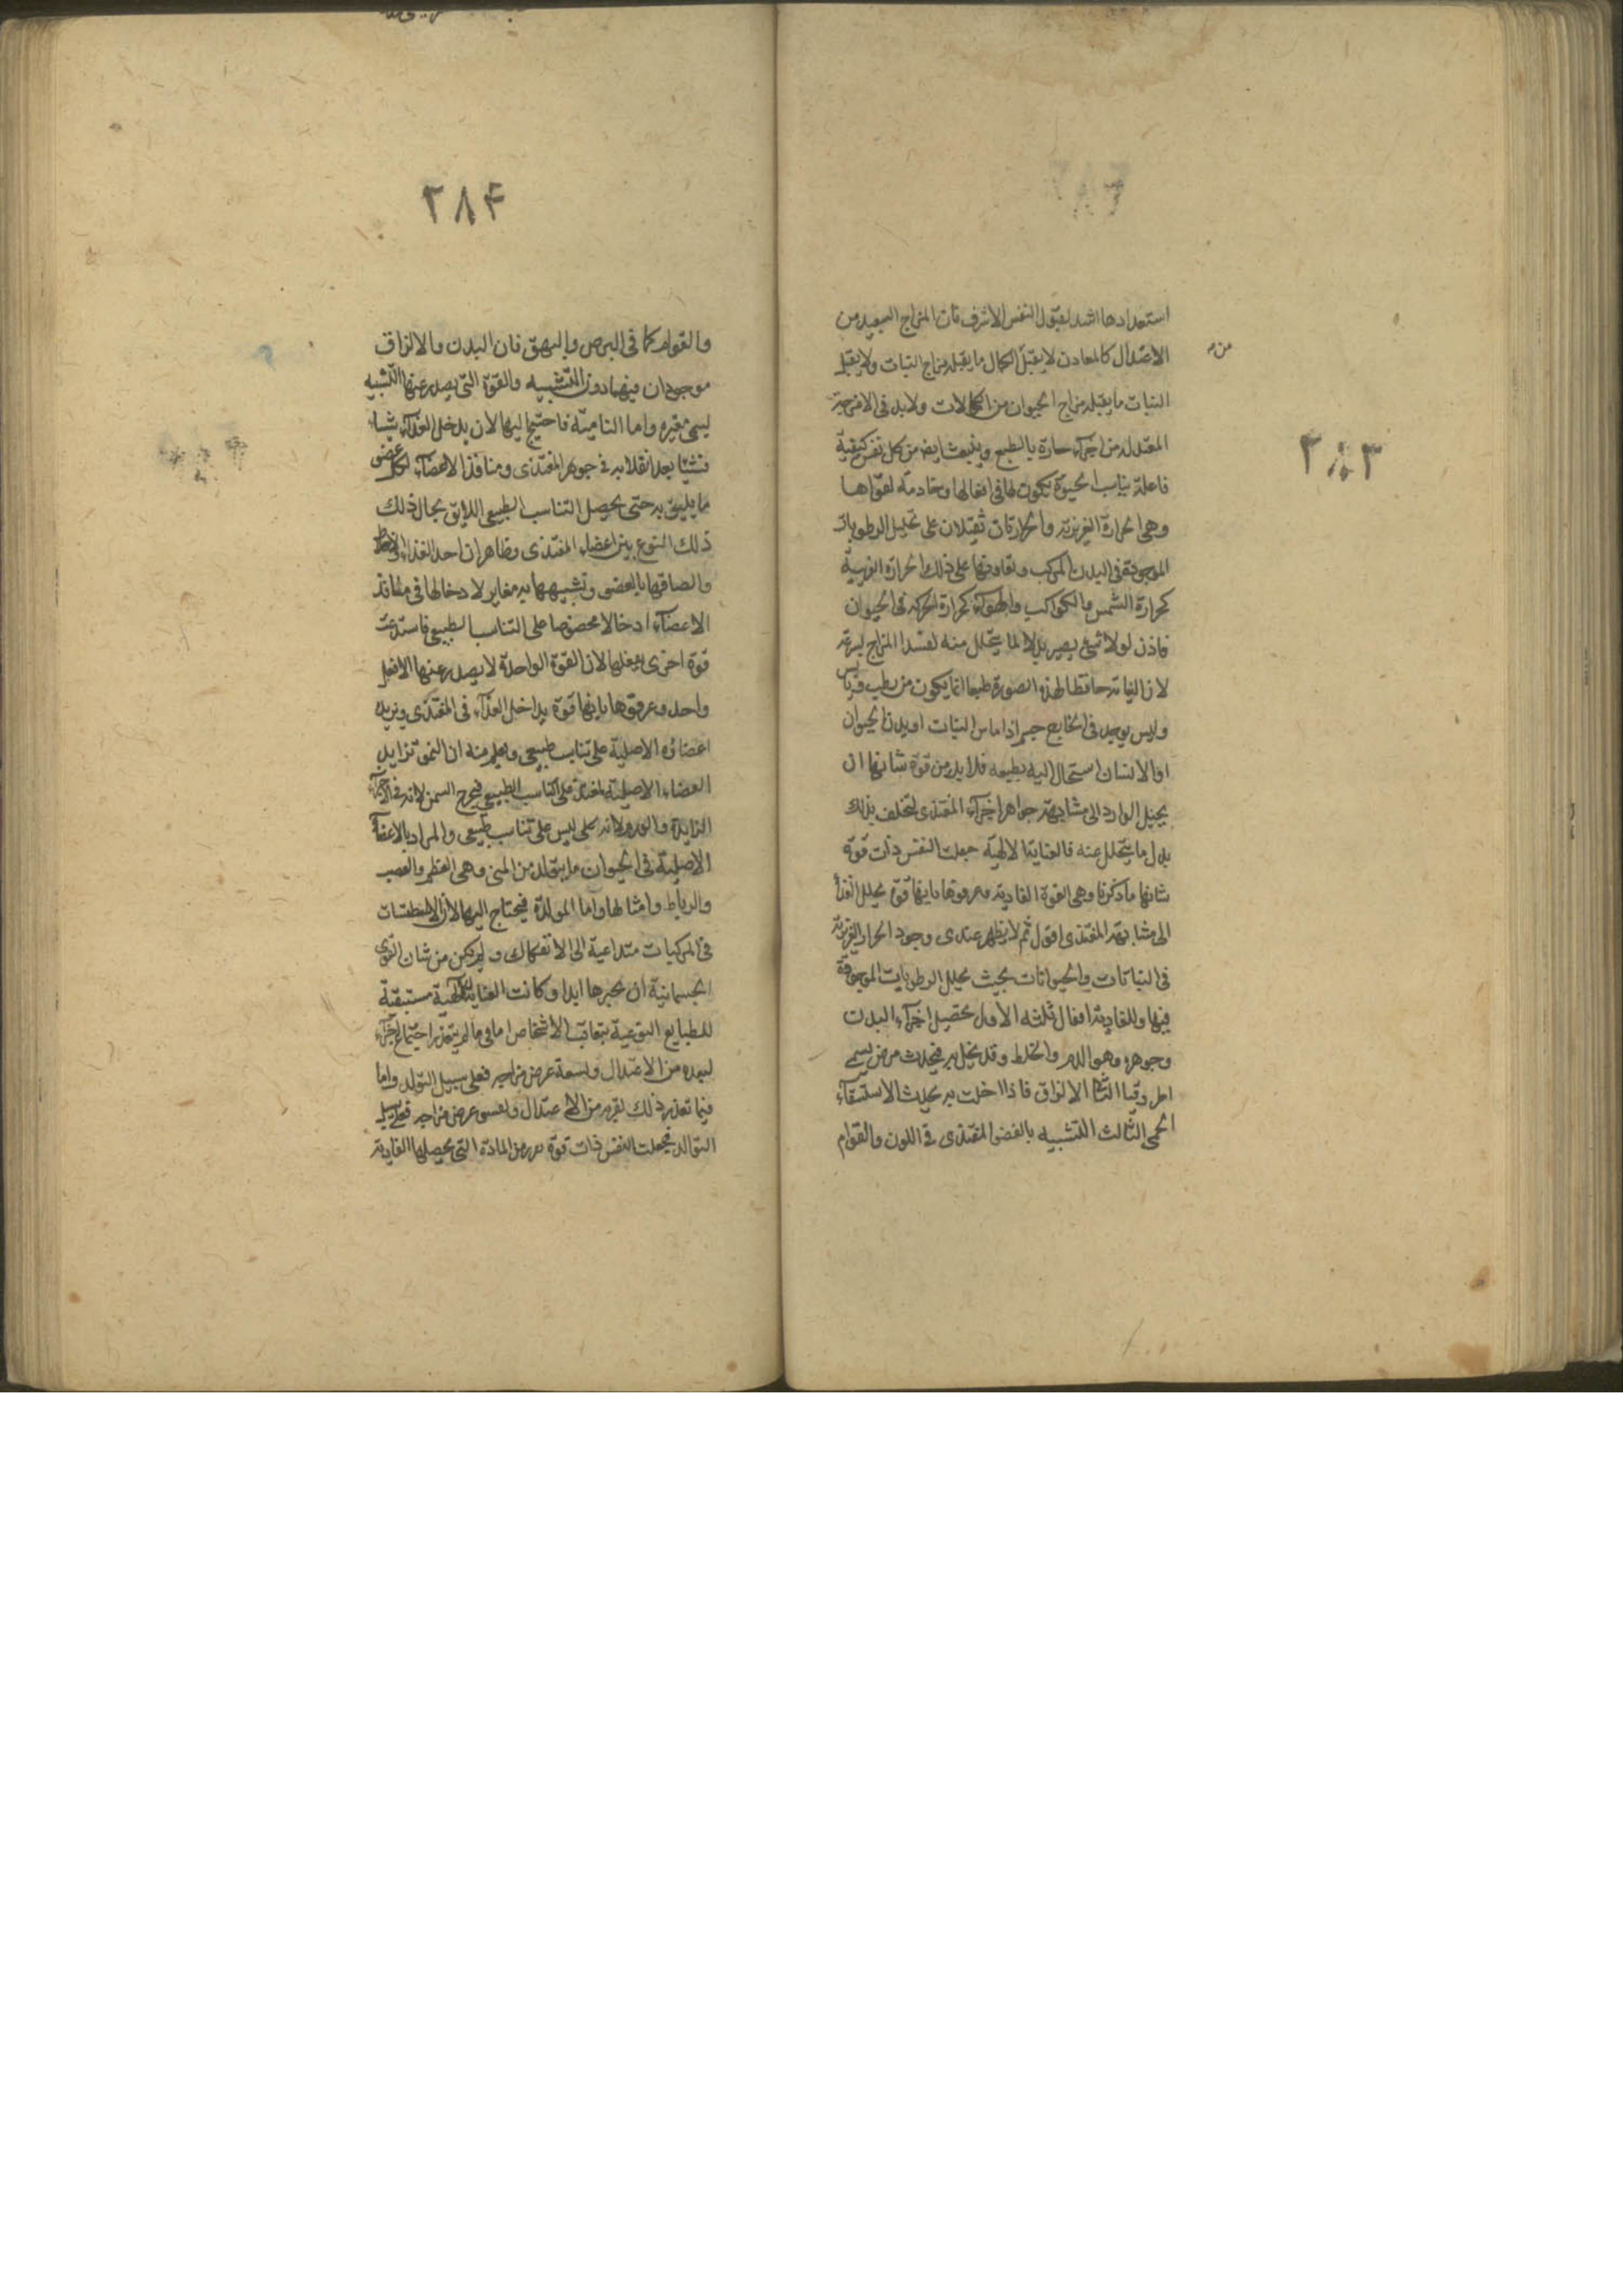 ٢٨٣
استعدادها اشد لقبول النفس الاشرف فان المزاج البعيد من
الاعتدال كالمعادن لا يقبل الكمال ما يقبله مزاج النبات ولا يقبل
من
النبات ما يقبله مزاج الحيوان من الكمالات ولابد فى الامزجة
المعتدلة من اجزآء حارة بالطبع وينبعث ايضا من كل نفس كيفية
فاعلة يناسب الحيوة يكون لها فى افعالها وخادمة لقواها
وهى الحرارة الغريزية والحرارتان تقبلان على تحليل الرطوبات
الموجودة فى البدن المركب وتعاونها على ذلك الحرارة الغريبة
كحرارة الشمس والكواكب والهوآء كحرارة الحركة فى الحيوان
فاذن لولا شئ يصير بدلا لما يتحلل منه لفسد المزاج بسرعة
لان الغاية حافظا لهذه الصورة طبعا انما يكون من رطب ويابس
وليس يوجد فى الخارج جسم اذا ماس النبات او بدن الحيوان
او الانسان استحال اليه بطبعه فلا بد من قوة شانها ان
يحيل الوارد الى مشابهة جواهر اجزآء المغتذى لتخلف بذلك
بدل ما يتحلل عنه فالعناية الالهية جعلت النفس ذات قوة
شانها ما ذكرنا وهى القوة الغاذية وعرفوها بانها قوة يحلل الغذآ
الى مشابهة المغتذى اقول ثم لا يظهر عندى وجود الحرار الغريزية
فى النباتات والحيوانات بحيث يحلل الرطوبات الموجودة
فيها وللغاذية افعال ثلثه الاول تحصيل اجزآء البدن
وجوهره وهو الدم والخلط وقد يخل به فيحدث مرض يسمى
اطروقيا الثانى الالزاق فاذا اخلت به يحدث الاستسقآء
الحمى الثالث التشبيه بالعضو المغتذى فى اللون والقوام
٢٨۴
والقوام كما فى البرص والبهق فان البدن والالزاق
موجودان فيهما دون التشبيه والقوة التى يصدر عنها التشبيه
يسمى مغيرة واما النامية فاحتيج اليها لان يدخل الغذآء شيئا
فشيئا بعد انقلابه فى جوهر المغتذى ومنافذ الاعضآء لكل عضو
ما يليق به حتى يحصل التناسب الطبيعى اللايق بحال ذلك
ذلك النوع بين اعضاء المغتذى وظاهر ان احد الغذاء
والصاقها بالعضو وتشبيهها به مغاير لادخالها فى منافذ
الاعضآء ادخالا مخصوصا على التناسب الطبيعى فاستدعت
قوة اخرى يفعلها لان القوة الواحدة لا يصدر عنها الا فعل
واحد وعرفوها بانها قوة يداخل الغذآء فى المغتذى ويزيد
اعضاؤه الاصلية على تناسب طبيعى ويعلم منه ان النمو تزايد
العضاء الاصلية المغتذى على التناسب الطبيعى فيخرج السمن لانه فى الاجزآء
الزايدة والورم لانه على ليس على تناسب طبيعى والمراد بالاعضآء
الاصلية فى الحيوان ما يتولد من المنى وهى العظم والعصب
والرباط وامثالها واما المولدة فيحتاج اليها لان الاسطقسات
فى المركبات متداعية الى الانفكاك ولم يكن من شان القوى
الجسمانية ان يجبرها ابدا وكانت العناية الالهية مستبقية
للطبايع النوعية بتعاقب الاشخاص اما فى ما لم يتعذر اجتماع اجزآء
لبعده من الاعتدال ولسعة عرض مزاجه فعلى سبيل التولد واما
فيما تعذر ذلك لقربه من الاعتدال وضيق عرض مزاجه فعلى سبيل
التوالد فجعلت النفس ذات قوة من المادة التى يحصلها الغاذية